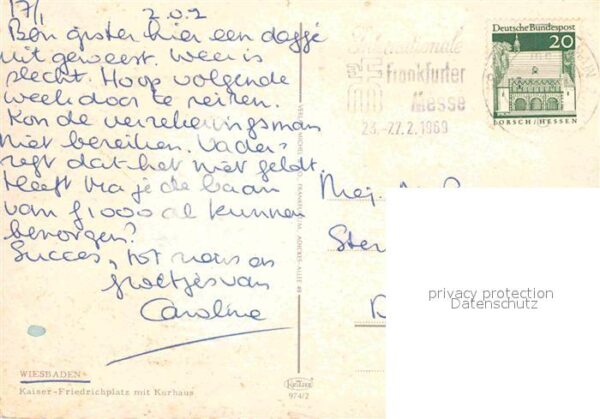 17/1 2.0.2
Ben gister hier een dagje
uit geweest. Weer is
slecht. Hoop volgende
week door te reizen.
Kon de verzekeringsman
niet bereiken. Vader
zegt dat het niet geldt.
Heeft Ma je de baan
van f 1000 al kunnen
bezorgen?
Succes, tot
groetjes van
Caroline
WIESBADEN
Kaiser-Friedrichplatz mit Kurhaus
Krüger
974/2
Internationale
Frankfurter
Messe
23.-27.2.1969
Deutsche Bundespost
20
LORSCH/HESSEN
Mej.
Ster
privacy protection
Datenschutz